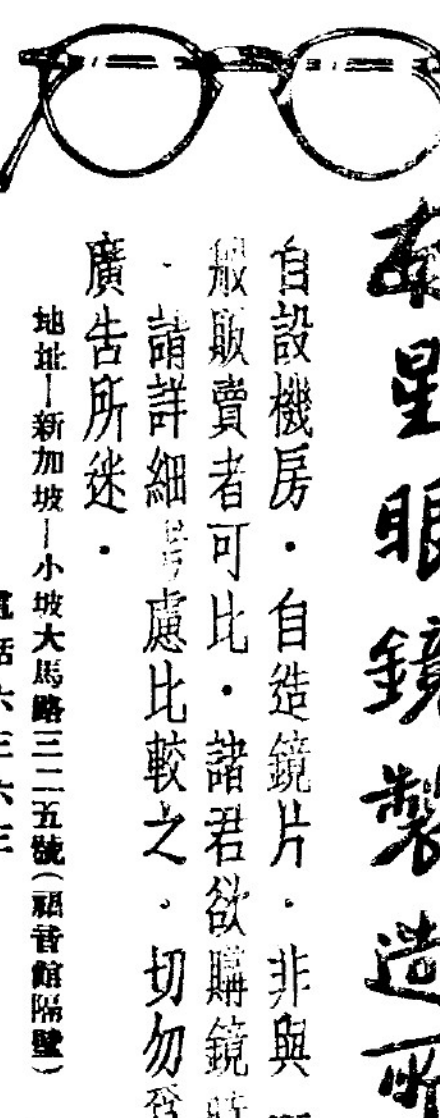 南星眼鏡製造所
自設機房．自造鏡片．非與
般販賣者可比．諸君欲購鏡時
．請詳細考慮比較之．切勿
廣告所迷．
地址—新加坡—小坡大馬路三二五號（福音館隔壁）
電話六三六三